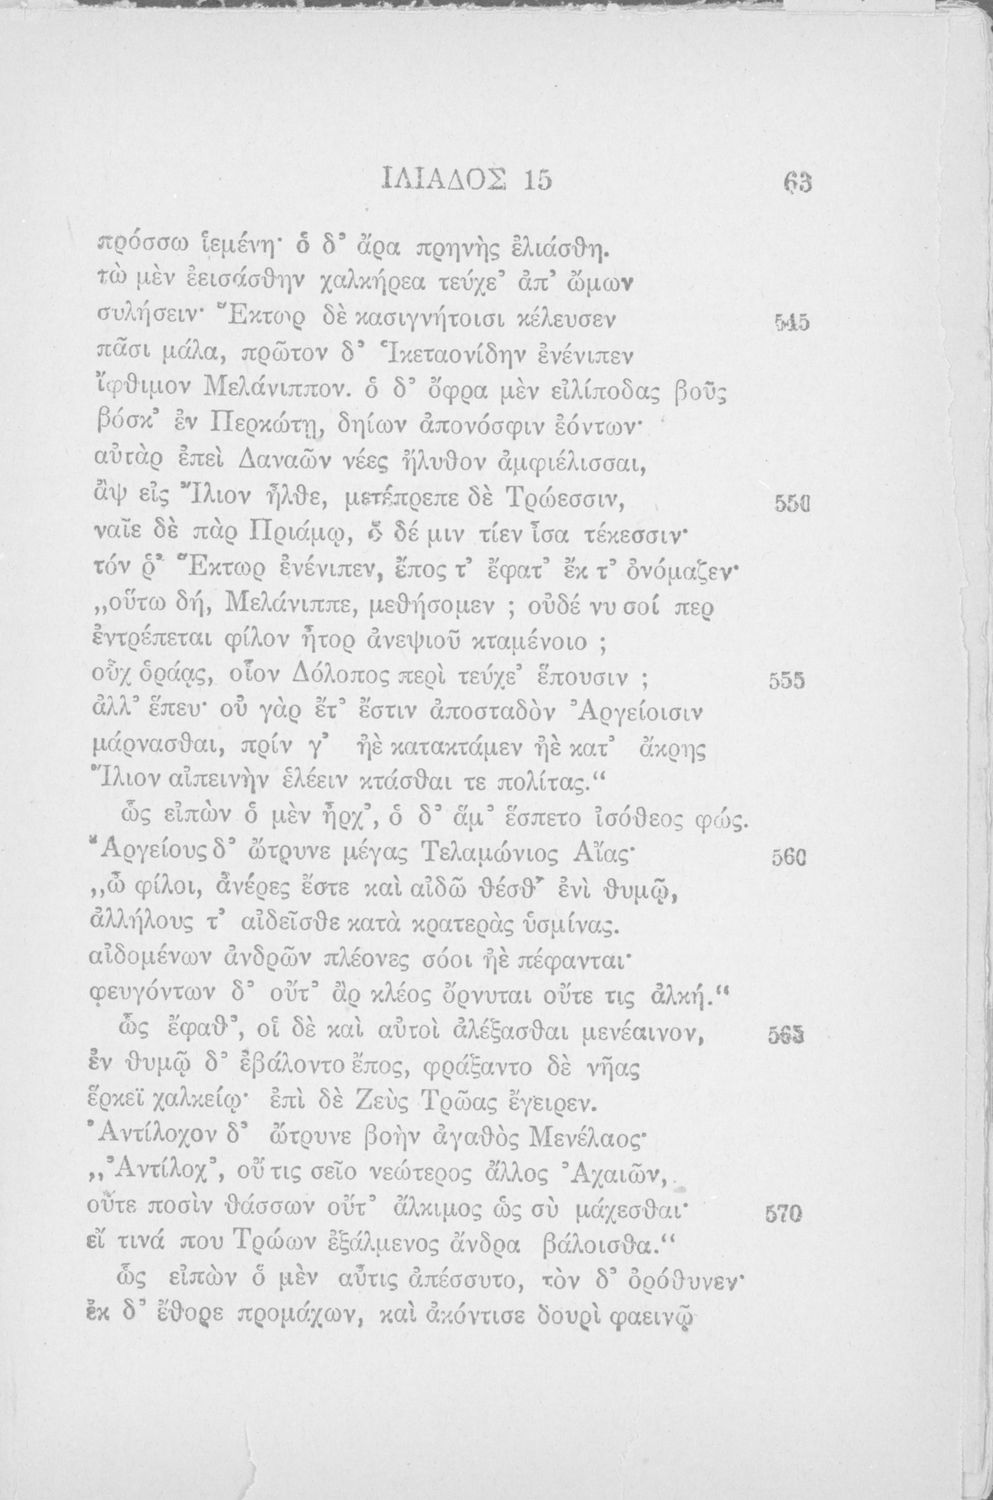 ΙΛΙΑΔΟΣ 15 63
πρόσσω ἱεμένη· ὁ δ’ ἄρα πρηνὴς ἐλιάσθη.
τὼ μὲν ἐεισάσθην χαλκήρεα τεύχε’ ἀπ’ ὤμων
συλήσειν· Ἕκτωρ δὲ κασιγνήτοισι κέλευσεν 545
πᾶσι μάλα, πρῶτον δ’ Ἱκεταονίδην ἐνένιπεν
ἴφθιμον Μελάνιππον. ὁ δ’ ὄφρα μὲν εἰλίποδας βοῦς
βόσκ’ ἐν Περκώτῃ, δηίων ἀπονόσφιν ἐόντων·
αὐτὰρ ἐπεὶ Δαναῶν νέες ἤλυθον ἀμφιέλισσαι,
ἂψ εἰς Ἴλιον ἦλθε, μετέπρεπε δὲ Τρώεσσιν, 550
ναῖε δὲ πὰρ Πριάμῳ, ὃ δέ μιν τίεν ἶσα τέκεσσιν·
τόν ῥ’ Ἕκτωρ ἐνένιπεν, ἔπος τ’ ἔφατ’ ἔκ τ’ ὀνόμαζεν·
„οὕτω δή, Μελάνιππε, μεθήσομεν ; οὐδέ νυ σοί περ
ἐντρέπεται φίλον ἦτορ ἀνεψιοῦ κταμένοιο ;
οὐχ ὁράᾳς, οἷον Δόλοπος περὶ τεύχε’ ἕπουσιν ; 555
ἀλλ’ ἕπευ· οὐ γὰρ ἔτ’ ἔστιν ἀποσταδὸν Ἀργείοισιν
μάρνασθαι, πρίν γ’ ἠὲ κατακτάμεν ἠὲ κατ’ ἄκρης
Ἴλιον αἰπεινὴν ἑλέειν κτάσθαι τε πολίτας.“
ὣς εἰπὼν ὁ μὲν ἦρχ’, ὁ δ’ ἅμ’ ἕσπετο ἰσόθεος φώς.
Ἀργείους δ’ ὤτρυνε μέγας Τελαμώνιος Αἴας· 560
„ὦ φίλοι, ἀνέρες ἔστε καὶ αἰδῶ θέσθ’ ἐνὶ θυμῷ,
ἀλλήλους τ’ αἰδεῖσθε κατὰ κρατερὰς ὑσμίνας.
αἰδομένων ἀνδρῶν πλέονες σόοι ἠὲ πέφανται·
φευγόντων δ’ οὔτ’ ἂρ κλέος ὄρνυται οὔτε τις ἀλκή.“
ὣς ἔφαθ’, οἱ δὲ καὶ αὐτοὶ ἀλέξασθαι μενέαινον, 565
ἐν θυμῷ δ’ ἐβάλοντο ἔπος, φράξαντο δὲ νῆας
ἕρκεϊ χαλκείῳ· ἐπὶ δὲ Ζεὺς Τρῶας ἔγειρεν.
Ἀντίλοχον δ’ ὤτρυνε βοὴν ἀγαθὸς Μενέλαος·
„Ἀντίλοχ’, οὔ τις σεῖο νεώτερος ἄλλος Ἀχαιῶν,
οὔτε ποσὶν θάσσων οὔτ’ ἄλκιμος ὡς σὺ μάχεσθαι· 570
εἴ τινά που Τρώων ἐξάλμενος ἄνδρα βάλοισθα.“
ὣς εἰπὼν ὁ μὲν αὖτις ἀπέσσυτο, τὸν δ’ ὀρόθυνεν·
ἐκ δ’ ἔθορε προμάχων, καὶ ἀκόντισε δουρὶ φαεινῷ